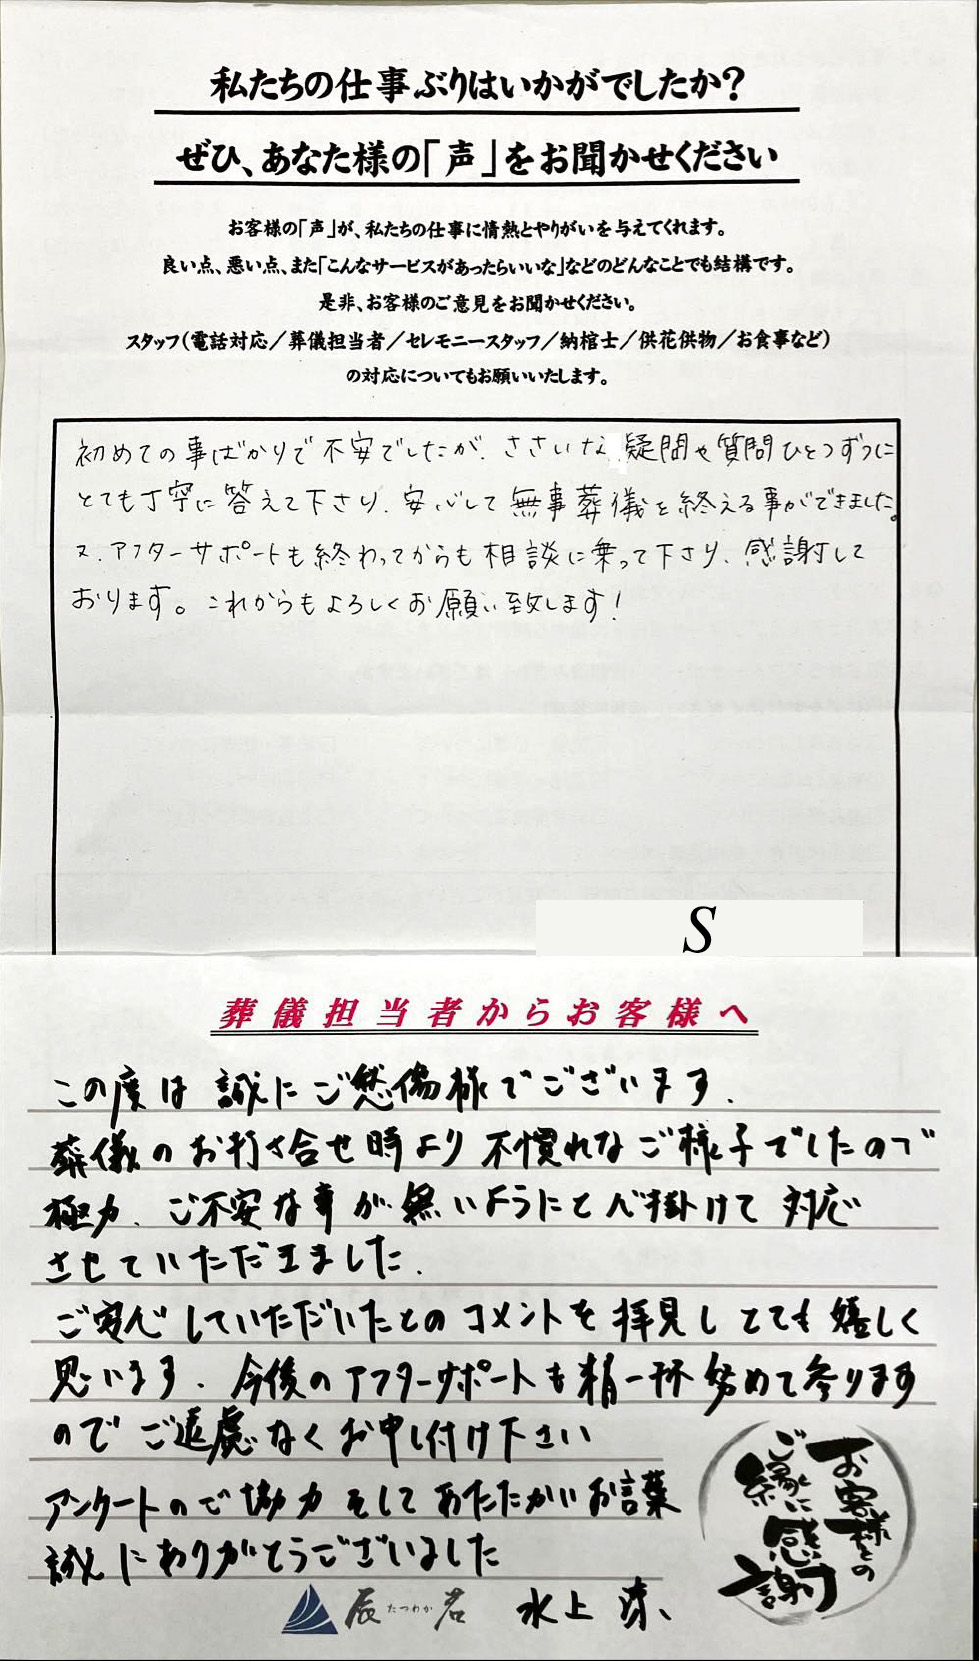 私たちの仕事ぶりはいかがでしたか?
ぜひ、あなた様の「声」をお聞かせください
お客様の「声」が、私たちの仕事に情熱とやりがいを与えてくれます。
良い点、悪い点、また「こんなサービスがあったらいいな」などのどんなことでも結構です。
是非、お客様のご意見をお聞かせください。
スタッフ(電話対応／葬儀担当者／セレモニースタッフ／納棺士／供花供物／お食事など)
の対応についてもお願いいたします。
初めての事ばかりで不安でしたが、ささいな疑問や質問ひとつずつに
とても丁寧に答えて下さり、安心して無事葬儀を終える事ができました。
又、アフターサポートも終わってからも相談に乗って下さり、感謝して
おります。これからもよろしくお願い致します!
S
葬儀担当者からお客様へ
この度は誠にご愁傷様でございます.
葬儀のお打ち合せ時より不慣れなご様子でしたので
極力、ご不安な事が無いようにと心掛けて対応
させていただきました.
ご安心していただいたとのコメントを拝見しとても嬉しく
思います. 今後のアフターサポートも精一杯努めて参ります
のでご遠慮なくお申し付け下さい
アンケートのご協力そしてあたたかいお言葉
誠にありがとうございました
お客様との
ご縁に
感謝
辰たつわか若 水上